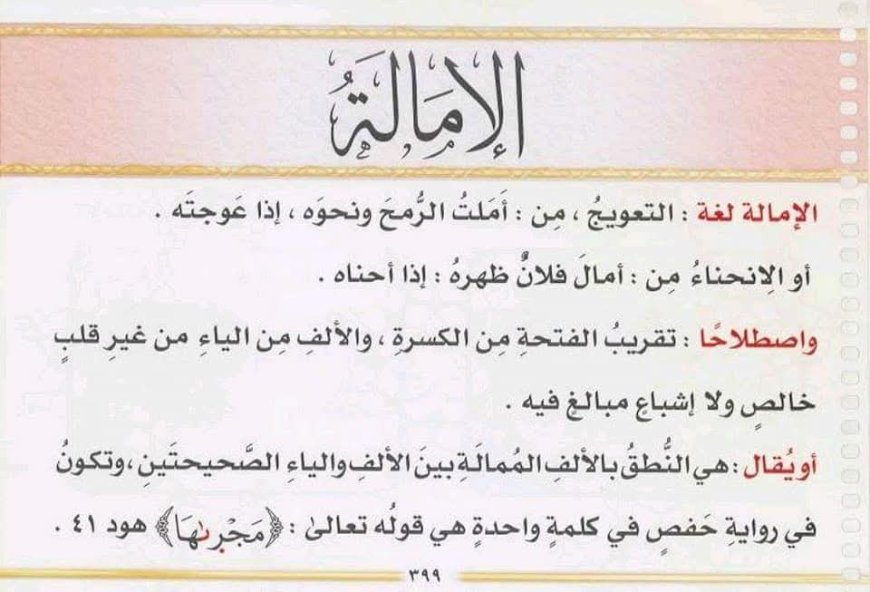 الإمَالَةُ
الإمالة لغة : التعويجُ ، مِن : أَمَلتُ الرُّمحَ ونحوَه ، إذا عَوجتَه .
أو الِانحناءُ مِن : أمالَ فلانٌ ظهرهُ : إذا أحناه .
واصطلاحًا : تقريبُ الفتحةِ مِن الكسرةِ ، والألفِ مِن الياءِ من غيرِ قلبٍ
خالصٍ ولا إشباعٍ مبالغٍ فيه .
أو يُقال : هي النُّطقُ بالألفِ المُمالَةِ بينَ الألفِ والياءِ الصَّحيحتَينِ ،وتكونُ
في روايةِ حَفصٍ في كلمةٍ واحدةٍ هي قولُه تعالىٰ : ﴿مَجْرٜىٰهَا﴾ هود ٤١ .
٣٩٩